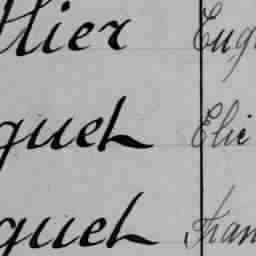 llier Eug
quet Elie
quet Fran